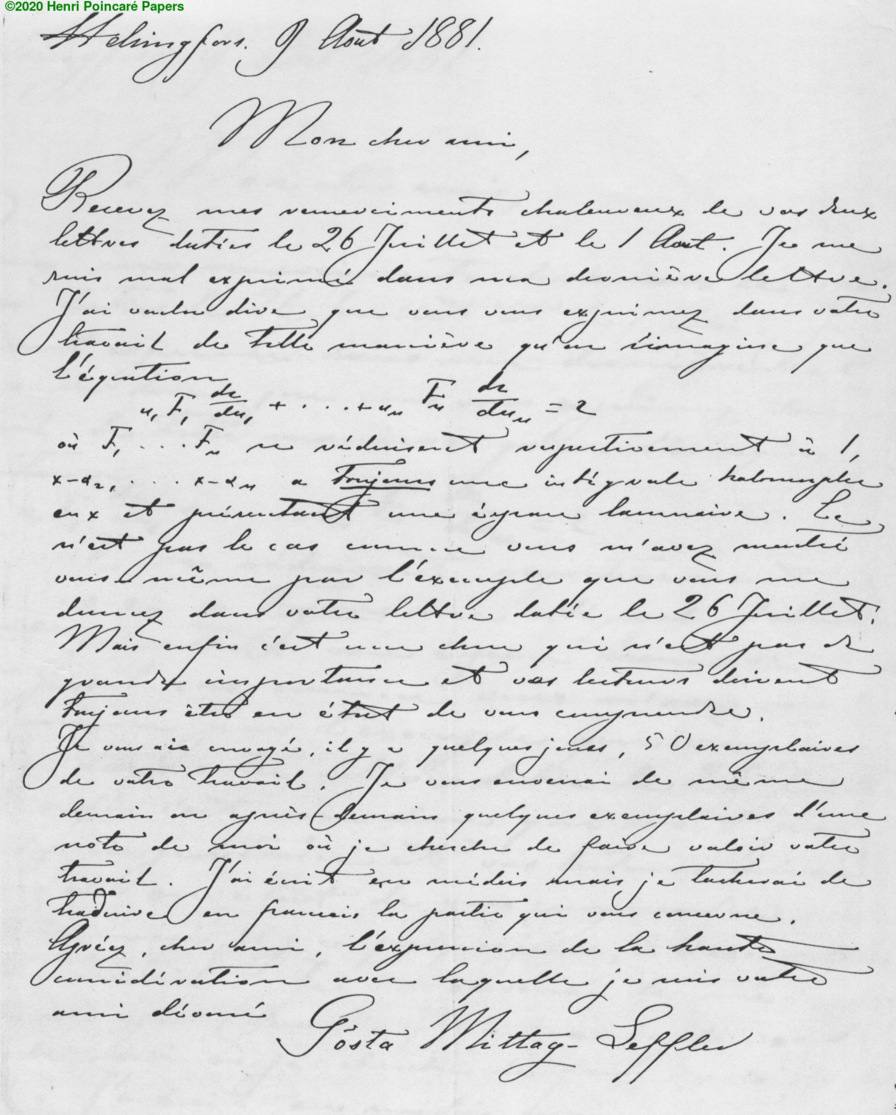 ©2020 Henri Poincaré Papers
Helsingfors. 9 Août 1881.
Mon cher ami,
Recevez mes remerciments chaleureux de vos deux
lettres datées le 26 Juillet et le 1 Août. Je me
suis mal exprimé dans ma dernière lettre.
J'ai voulu dire que vous vous exprimez dans votre
travail de telle manière qu'on s'imagine que
l'équation
x₁ F₁ dz/dx₁ + · · · + xₙ Fₙ dz/dxₙ = z
où F₁ . . . Fₙ se réduisent respectivement à 1,
x-α₂, . . . x-αₙ a toujours une intégrale holomorphe
en x et présentant une espace lacunaire. Ce
n'est pas le cas comme vous m'avez montré
vous même par l'exemple que vous me
donnez dans votre lettre datée le 26 Juillet.
Mais enfin c'est une chose qui n'est pas de
grande importance et vos lecteurs doivent
toujours être en état de vous comprendre.
Je vous ai envoyé, il y a quelques jours, 50 exemplaires
de votre travail. Je vous enverrai de même
demain ou après demain quelques exemplaires d'une
note de moi où je cherche de faire valoir votre
travail. J'ai écrit en suédois mais je tacherai de
traduire en francais la partie qui vous concerne.
Agréez, cher ami, l'expression de la haute
considération avec laquelle je suis votre
ami dévoué
Gösta Mittag-Leffler